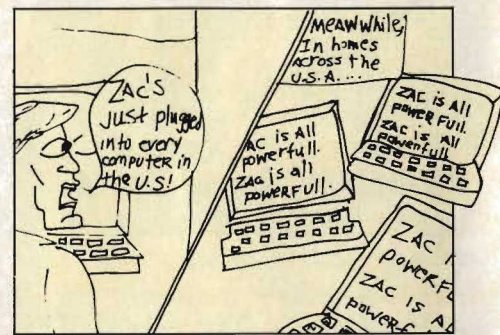 ZAC'S
just plugged
into every
computer in
the U.S!
MEAWWhile,
In homes
Across the
U.S.A....
AC is All
powerfull.
ZAC is all
POWERFULL.
ZAC is All
POWER FUll.
ZAC is All
powerfull
ZAC I
POWERFU
ZAC is A
powerf